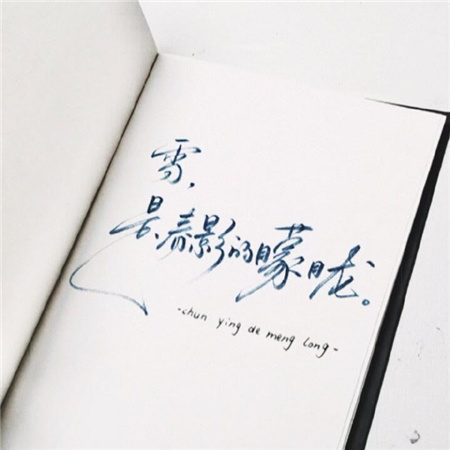 雪,
是春影的朦胧。
-chun ying de meng long-